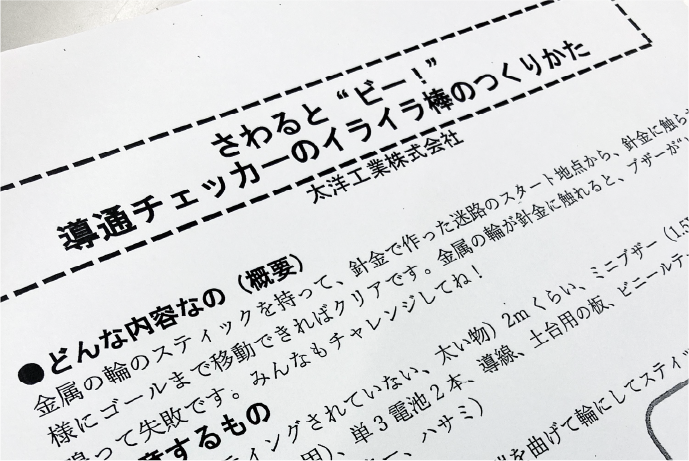 さわると“ビー！”
導通チェッカーのイライラ棒のつくりかた
太洋工業株式会社
●どんな内容なの（概要）
金属の輪のスティックを持って、針金で作った迷路のスタート地点から、針金に触ら
様にゴールまで移動できればクリアです。金属の輪が針金に触れると、ブザーが“
鳴って失敗です。みんなもチャレンジしてね！
意するもの
ティングされていない、太い物）2mくらい、ミニブザー（1.5
用）、単3電池2本、導線、土台用の板、ビニールテ
ー、ハサミ）
を曲げて輪にしてスティッ